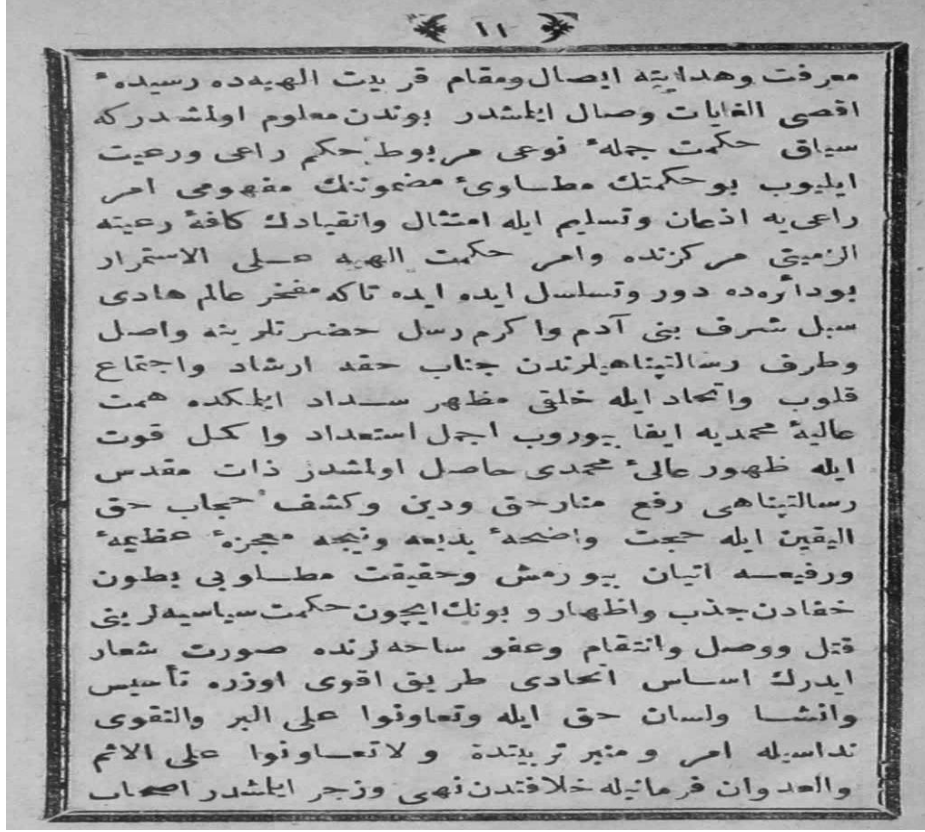 ١١
معرفت وهدايته ايصال ومقام قربت الهيه ده رسيدهٔ
اقصى الغايات وصال ايلمشدر بوندن معلوم اولمشدركه
سياق حكمت جملهٔ نوعى مربوط حكم راعى ورعيت
ايليوب بوحكمتك مطاوىٔ مضموننك مفهومى امر
راعى يه اذعان وتسليم ايله امتثال وانقيادك كافهٔ رعيته
الزميتى مركزنده وامر حكمت الهيه على الاستمرار
بودائره ده دور وتسلسل ايده ايده تاكه مفخر عالم هادى
سبل شرف بنى آدم واكرم رسل حضرتلرينه واصل
وطرف رسالتپناهيلرندن جناب حقه ارشاد واجتماع
قلوب واتحاد ايله خلقى مظهر سداد ايلمكده همت
عاليهٔ محمديه ايفا بيوروب اجمل استعداد واكمل قوت
ايله ظهور عالىٔ محمدى حاصل اولمشدر ذات مقدس
رسالتپناهى رفع منار حق ودين وكشف حجاب حق
اليقين ايله حجت واضحهٔ بديعه ونيجه معجزهٔ عظيمهٔ
ورفيعه اتيان بيورمش وحقيقت مطلوبى بطون
خفادن جذب واظهار و بونك ايچون حكمت سياسيه لرينى
قتل ووصل وانتقام وعفو ساحه لرنده صورت شعار
ايدرك اساس اتحادى طريق اقوى اوزره تأسيس
وانشا ولسان حق ايله وتعاونوا على البر والتقوى
نداسيله امر و منبر تربيتدة و لاتعاونوا على الاثم
والعدوان فرمانيله خلافتدن نهى وزجر ايلمشدر اصحاب